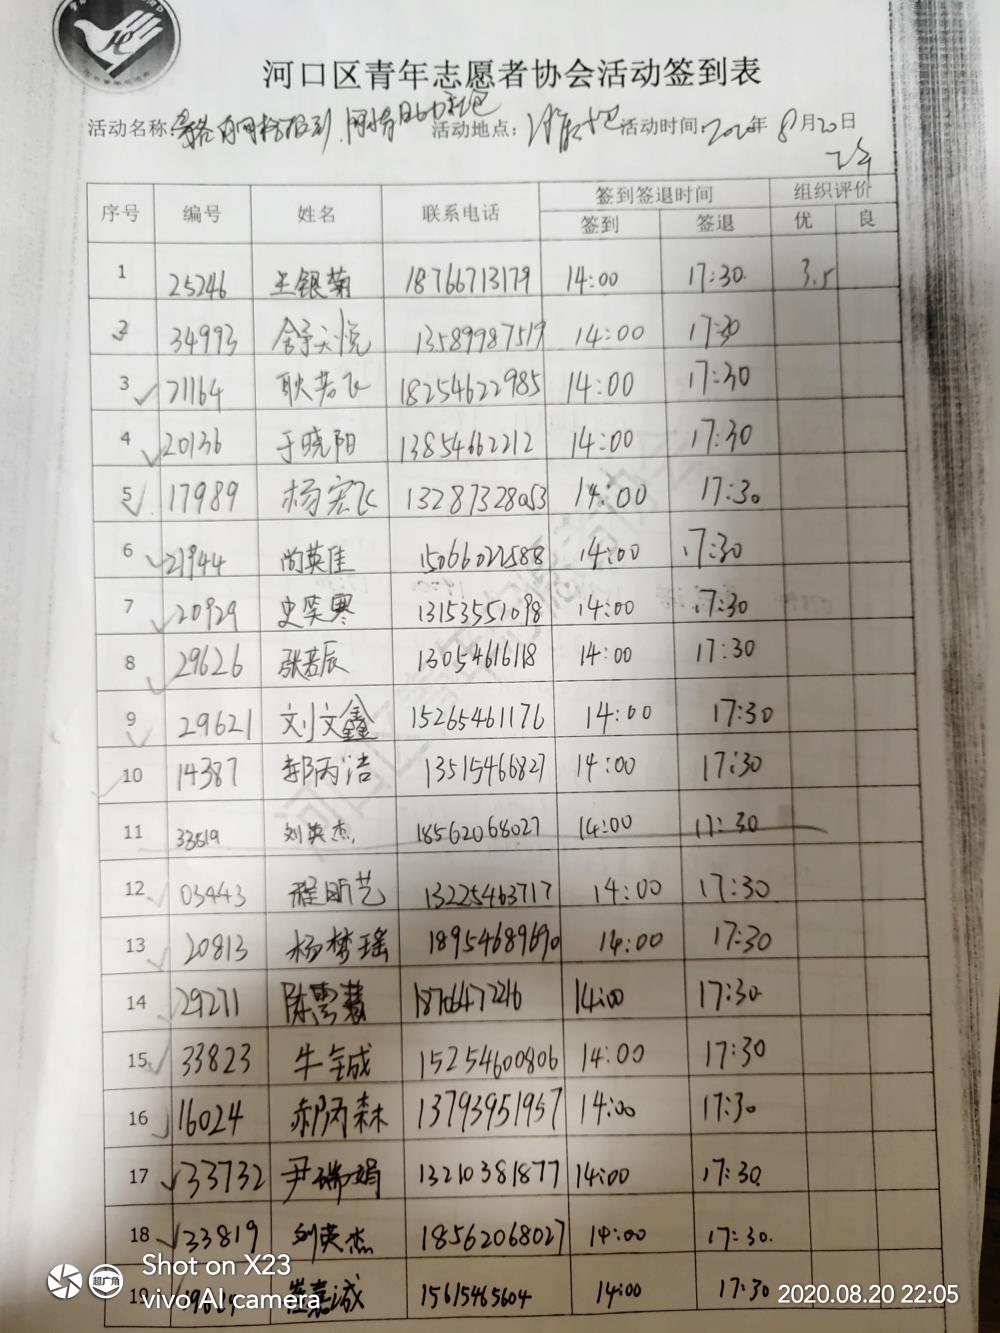 河口区青年志愿者协会活动签到表
活动名称: 活动地点: 活动时间: 2020年 8月20日
序号 编号 姓名 联系电话 签到签退时间 组织评价
签到 签退 优 良
1 25246 王银菊 18766713179 14:00 17:30 3.5
2 34993 舒天悦 13589987519 14:00 17:30
3 21164 耿若飞 18254622985 14:00 17:30
4 20136 于晓阳 13854662212 14:00 17:30
5 17989 杨宏飞 13287328053 14:00 17:30
6 21944 尚英佳 15066022588 14:00 17:30
7 20929 史笑寒 13153551098 14:00 17:30
8 29626 张若辰 13054616118 14:00 17:30
9 29621 刘文鑫 15265461176 14:00 17:30
10 14387 郝丙洁 13515466827 14:00 17:30
11 33819 刘英杰 18562068027 14:00 17:30
12 03443 程昕艺 13225463717 14:00 17:30
13 20813 杨梦瑶 18954689690 14:00 17:30
14 29271 陈雪慧 18706472216 14:00 17:30
15 33823 牛铖 15254600806 14:00 17:30
16 16024 郝丙森 13793951957 14:00 17:30
17 33732 尹瑞娟 13210381877 14:00 17:30
18 33819 刘英杰 18562068027 14:00 17:30
19 崔嘉诚 15615465604 14:00 17:30
超广角
Shot on X23
vivo AI camera
2020.08.20 22:05